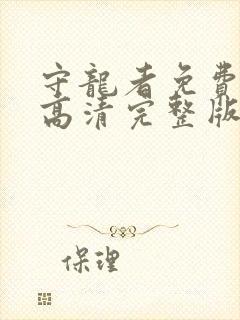 守龍者免費
高清完整版
保理